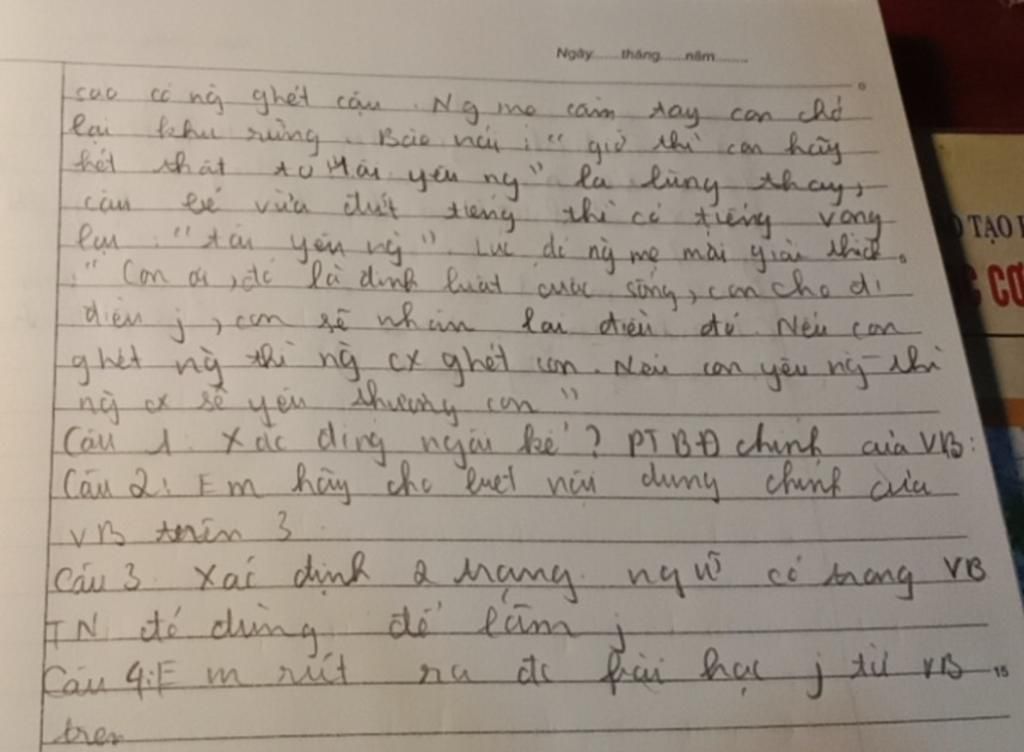 Ngày......tháng......năm.........
sao có ng ghét cậu. Ng mẹ cầm tay con chở
lại khu rừng. Bảo nói: "giờ thì con hãy
hét thật to "tôi yêu ng" lạ lùng thay,
cậu bé vừa dứt tiếng thì có tiếng vọng
lại: "tôi yêu ng". Lúc đó ng mẹ mới giải thích.
: "Con ơi, đó là định luật cuộc sống, con cho đi
điều j, con sẽ nhận lại điều đó. Nếu con
ghét ng thì ng cx ghét con. Nếu con yêu ng thì
ng cx sẽ yêu thương con"
Câu 1: Xác định ngôi kể? PTBĐ chính của VB:
Câu 2: Em hãy cho biết nội dung chính của
VB trên?
Câu 3 Xác định 2 trạng ngữ có trong VB
TN đó dùng để làm j
Câu 4: Em rút ra đc bài học j từ VB
trên
15
TẠO
CƠ